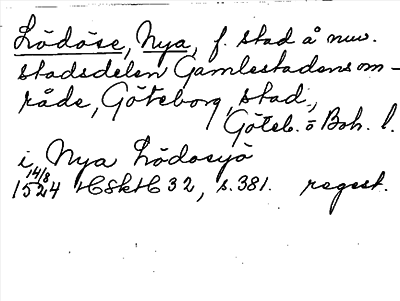 Lödöse, Nya, f. stad å nuv.
stadsdelen Gamlestadens om-
råde, Göteborg, stad,
Göteb. o Boh. l.
i Nya Lödosyö
14/8
1524 HSkH 32, s. 381. regest.